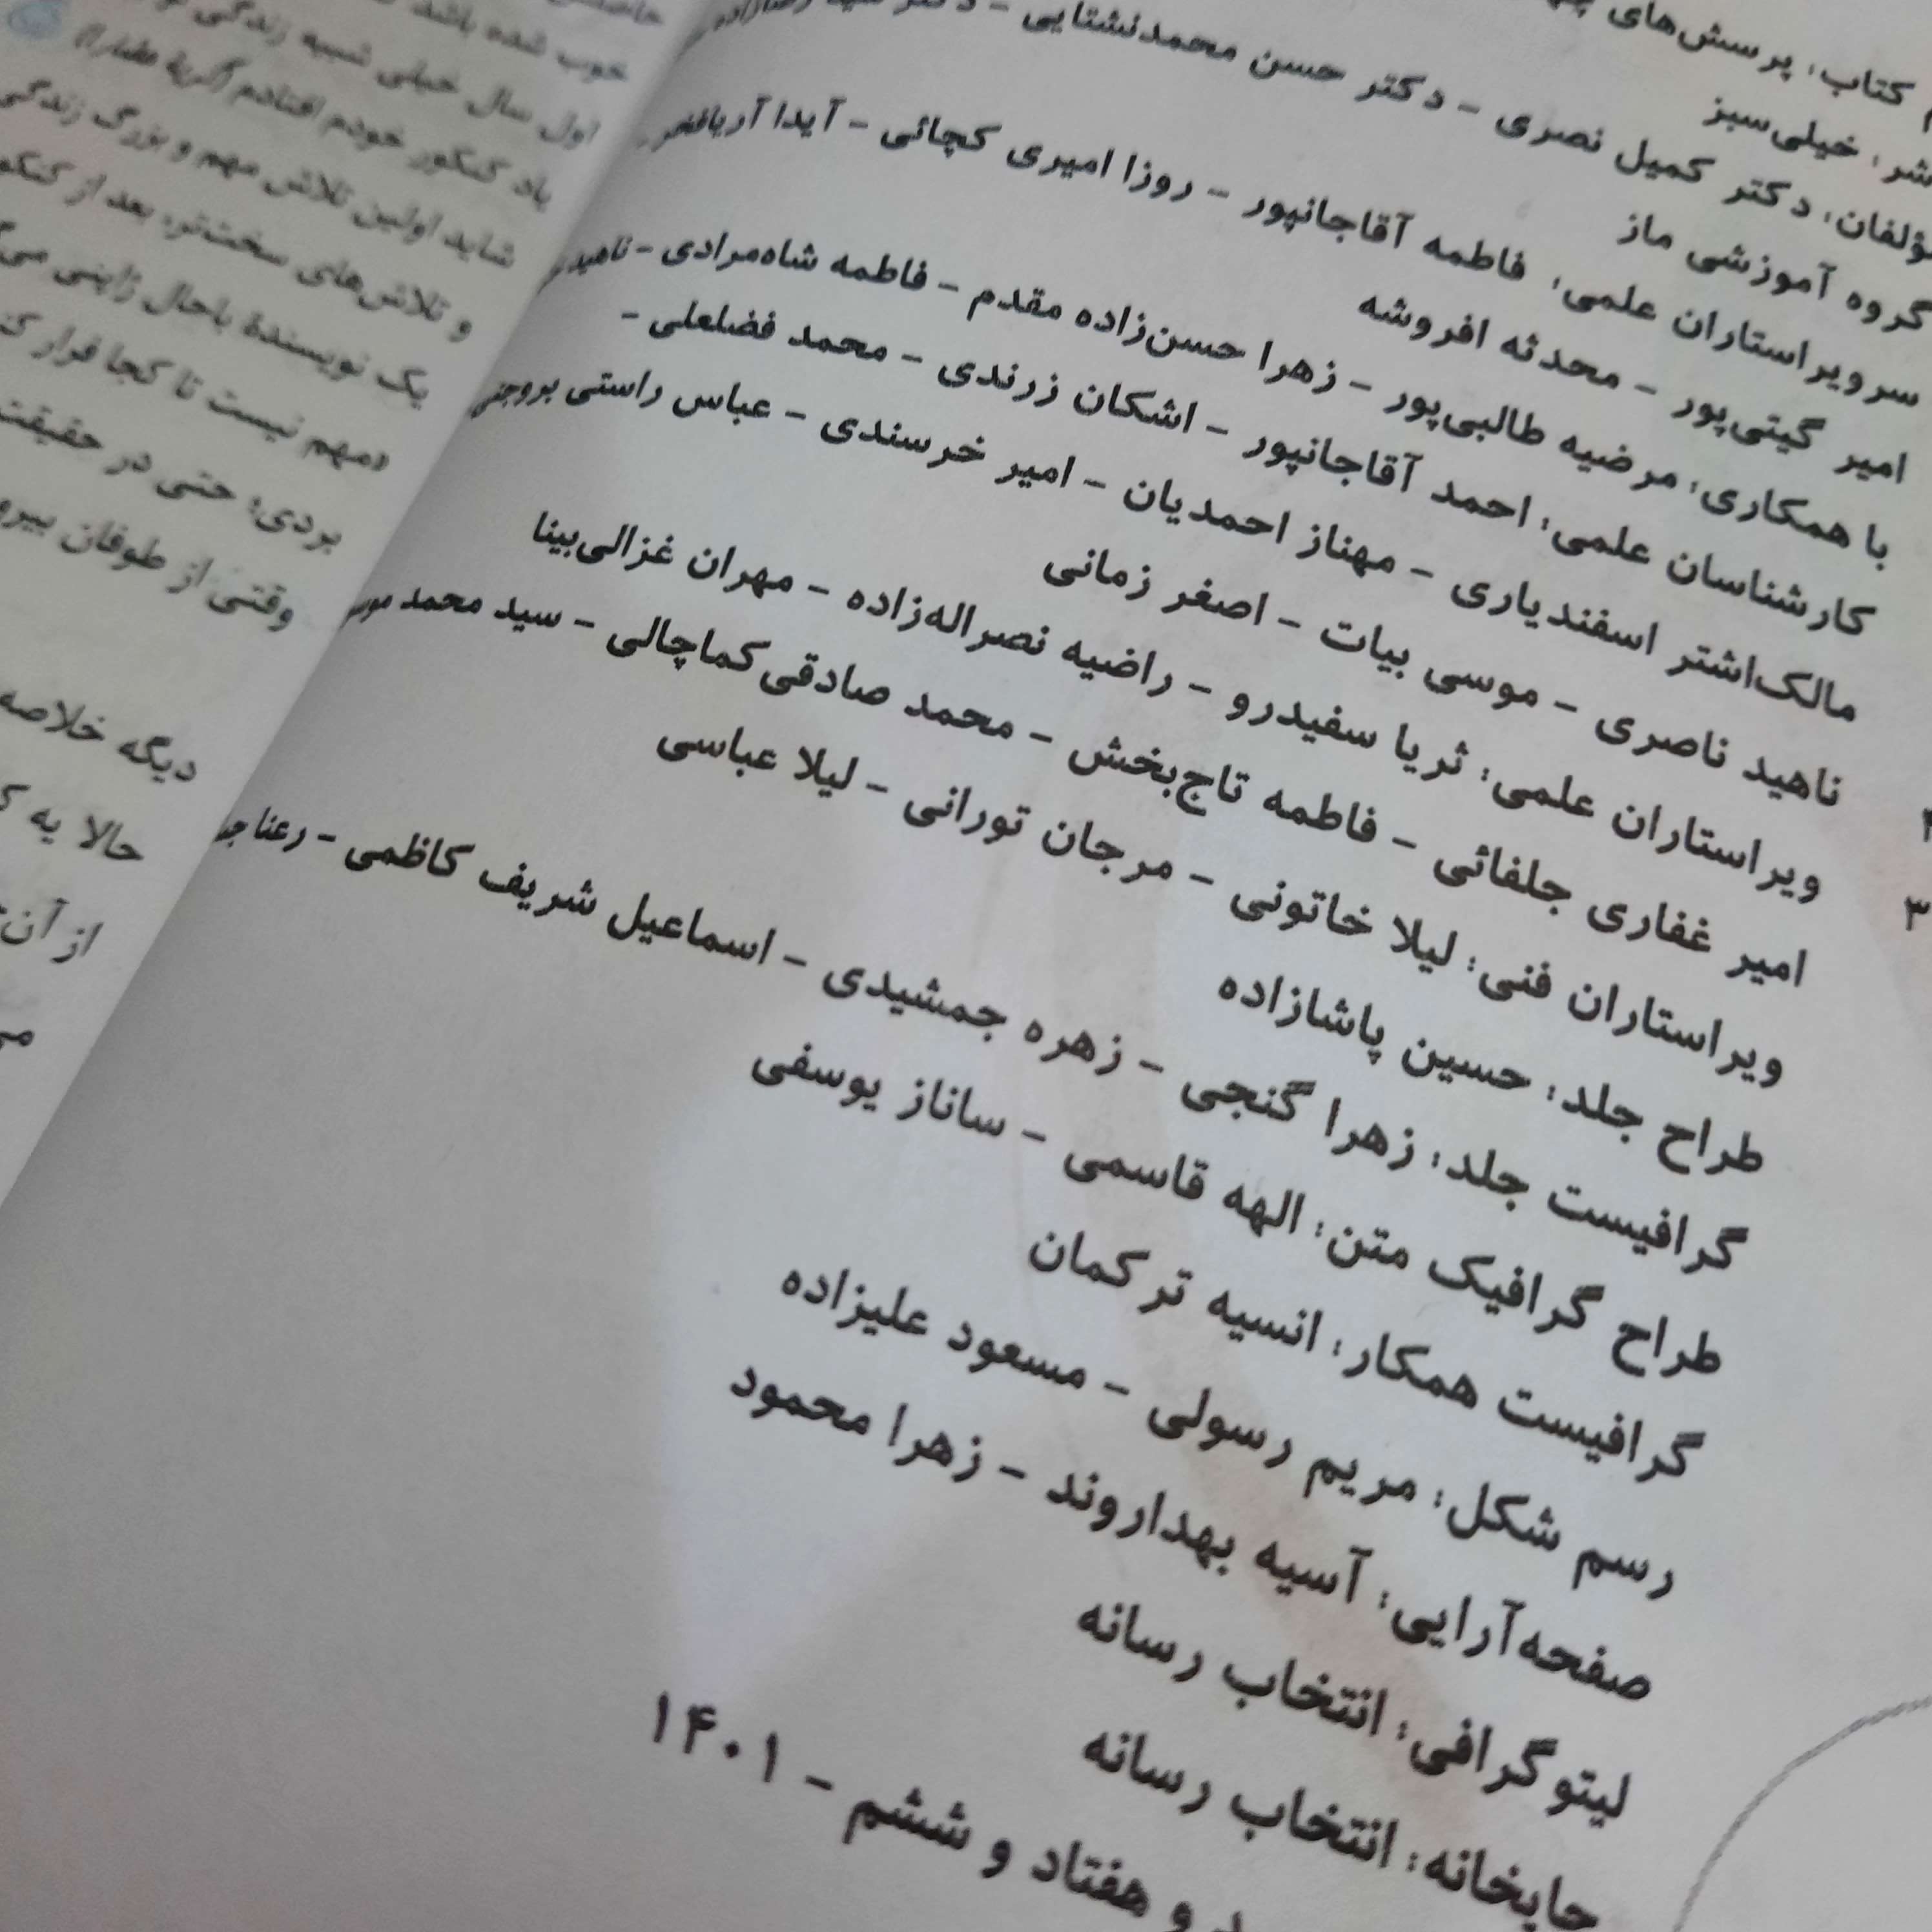 کتاب: پرسش‌های
خیلی‌سبز
دکتر کمیل نصری - دکتر حسن محمدنشتایی -
گروه آموزشی ماز
سرویراستاران علمی: فاطمه آقاجانپور - روزا امیری کچائی - آیدا
امیر گیتی‌پور - محدثه افروشه
با همکاری: مرضیه طالبی‌پور - زهرا حسن‌زاده مقدم - فاطمه شاه‌مرادی - ناهید
کارشناسان علمی: احمد آقاجانپور - اشکان زرندی - محمد فضلعلی -
مالک‌اشتر اسفندیاری - مهناز احمدیان - امیر خرسندی - عباس راستی بروجنی
ناهید ناصری - موسی بیات - اصغر زمانی
ویراستاران علمی: ثریا سفیدرو - راضیه نصراله‌زاده - مهران غزالی‌بینا
امیر غفاری جلفائی - فاطمه تاج‌بخش - محمد صادقی‌کماچالی - سید محمد
ویراستاران فنی: لیلا خاتونی - مرجان تورانی - لیلا عباسی
طراح جلد: حسین پاشازاده
گرافیست جلد: زهرا گنجی - زهره جمشیدی - اسماعیل شریف کاظمی - رعنا
طراح گرافیک متن: الهه قاسمی - ساناز یوسفی
گرافیست همکار: انسیه ترکمان
رسم شکل: مریم رسولی - مسعود علیزاده
صفحه‌آرایی: آسیه بهداروند - زهرا محمود
لیتوگرافی: انتخاب رسانه
چاپخانه: انتخاب رسانه
و هفتاد و ششم - ۱۴۰۱
۳
خوب شده باشد
اول سال خیلی شبیه زندگی
یاد کنکور خودم افتادم
شاید اولین تلاش مهم و بزرگ زندگی
و تلاش‌های سخت‌تر، بعد از
یک نویسندهٔ باحال ژاپنی
«مهم نیست تا کجا فرار
بردی؛ حتی در حقیقت
وقتی از طوفان
دیگه خلاصه
حالا یه
از آن